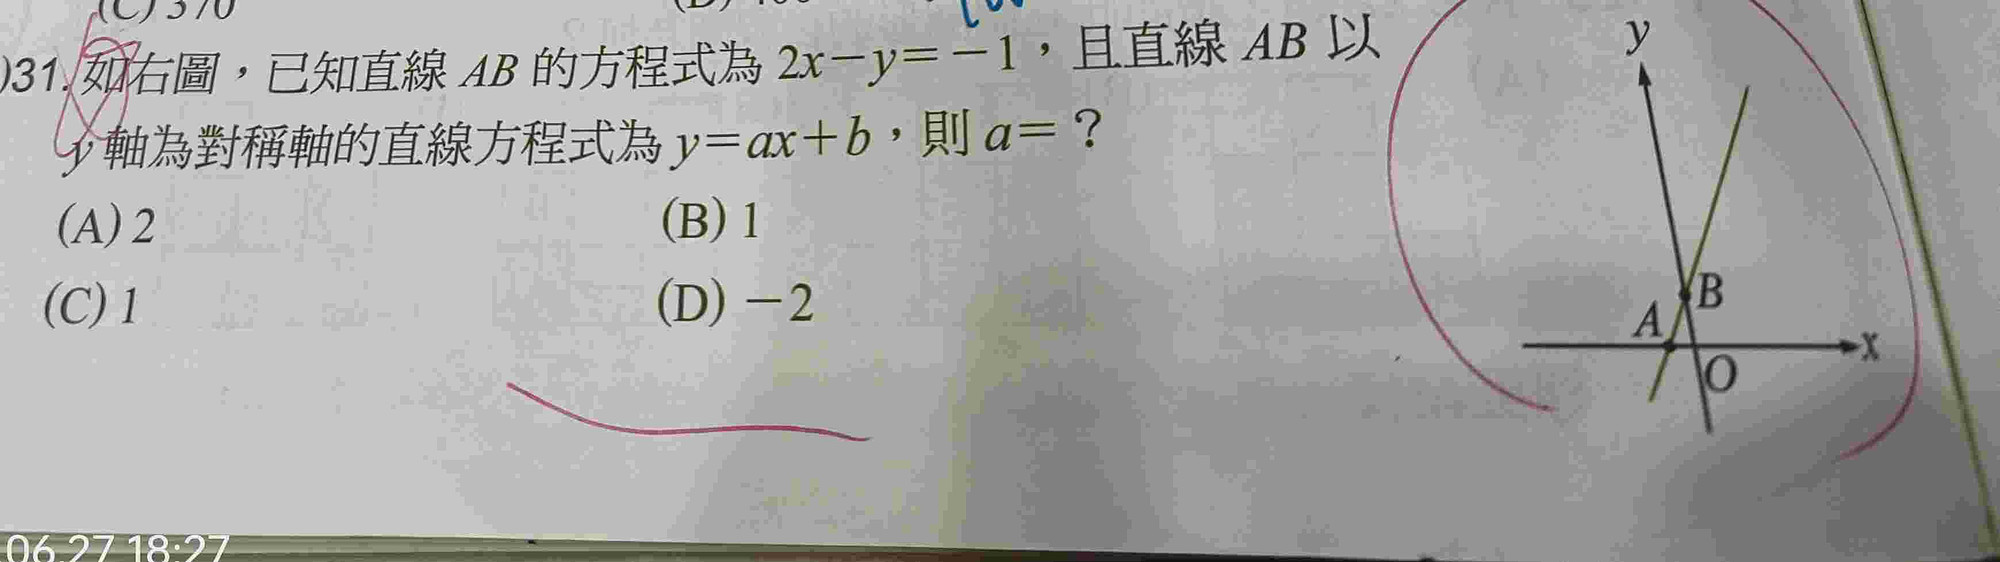 (C) 370
)31. 如右圖，已知直線 AB 的方程式為 2x－y＝－1，且直線 AB 以
y 軸為對稱軸的直線方程式為 y＝ax＋b，則 a＝？
(A) 2 (B) 1
(C) 1 (D) －2
y
B
A
x
O
06.27 18:27